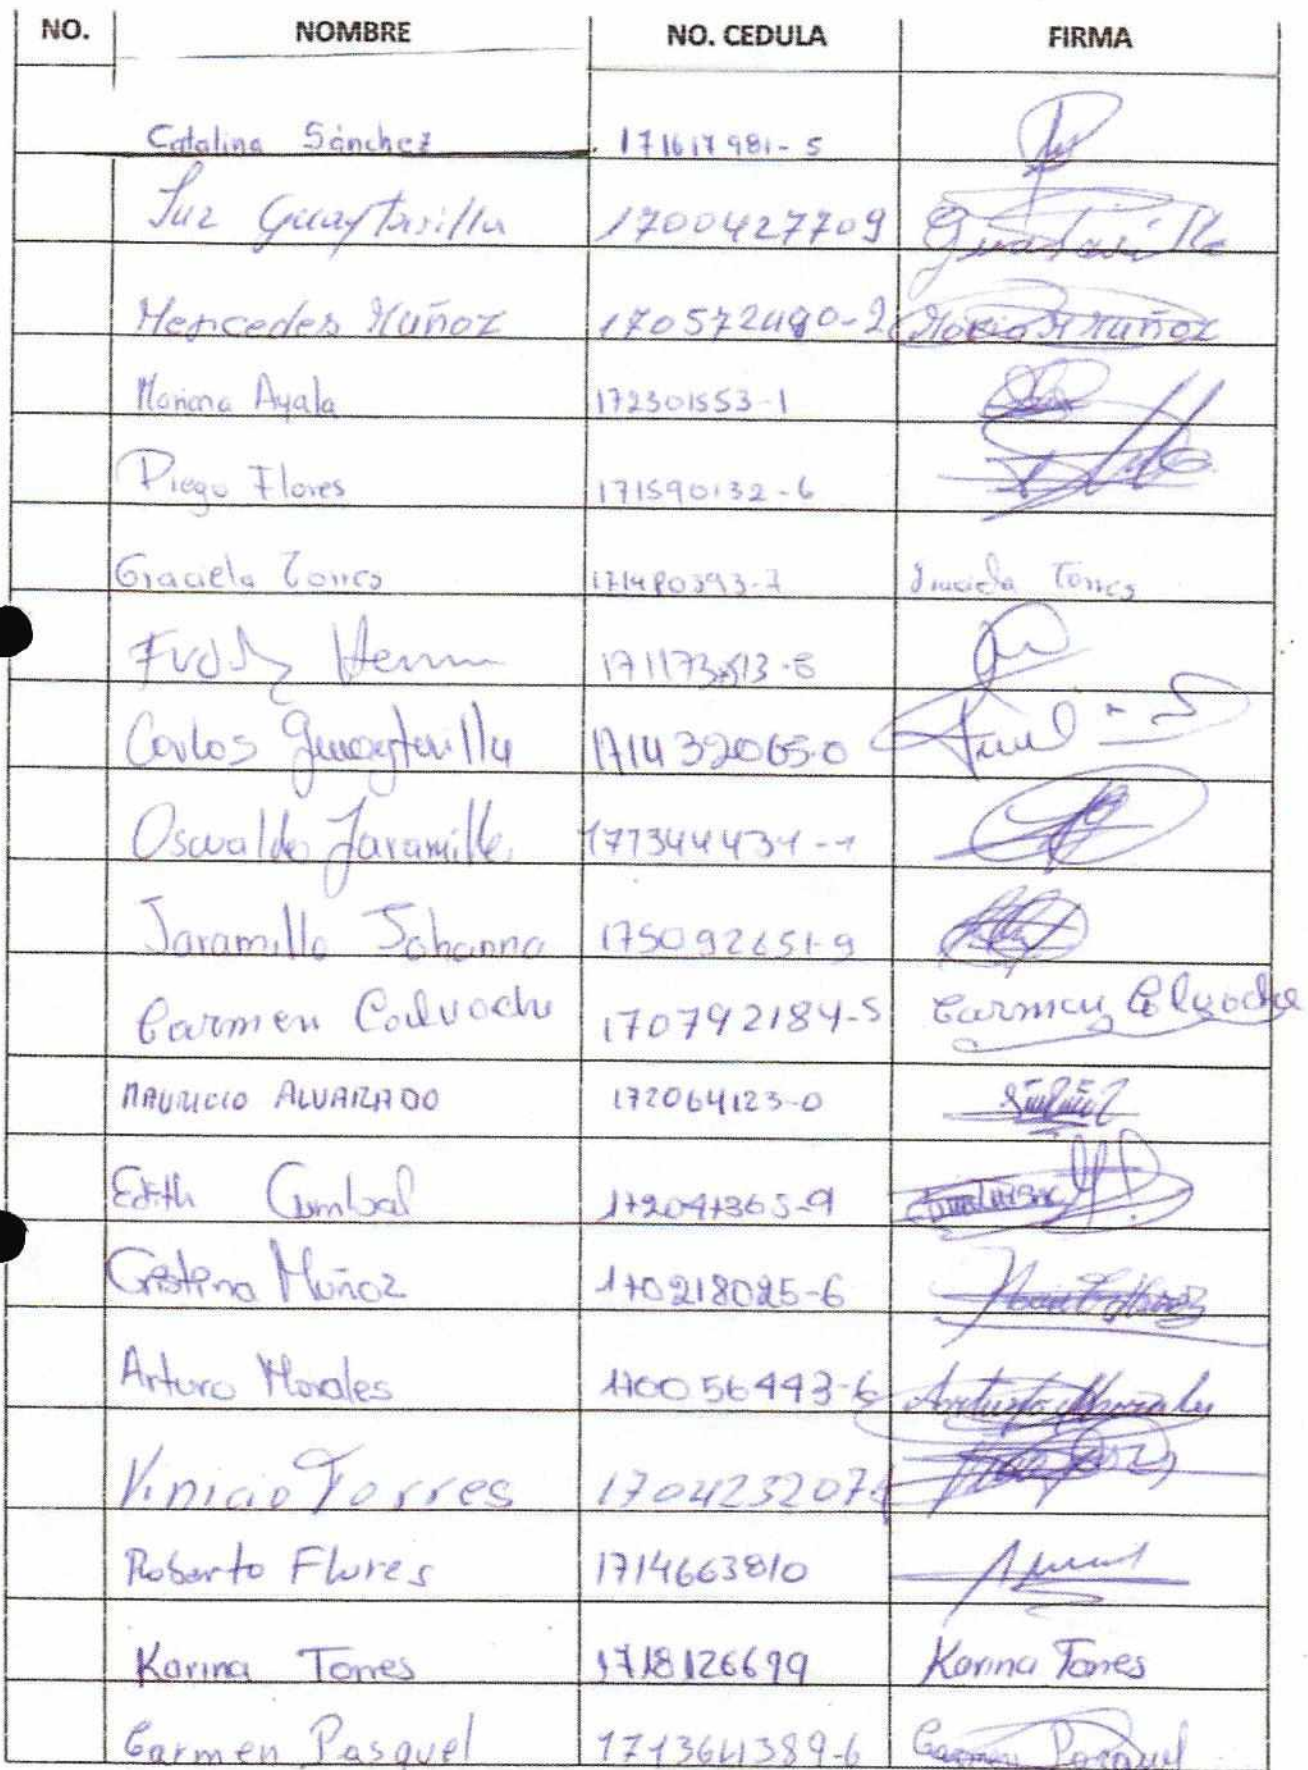 NO. NOMBRE NO. CEDULA FIRMA
Catalina Sánchez 171617981-5
Luz Guaytarilla 1700427709
Mercedes Muñoz 170572490-2 Muñoz
Mariana Ayala 172301553-1
Diego Flores 171590132-6
Graciela Torres 171480393-7 Graciela Torres
Carlos Guaytarilla 171432065-0
Oswaldo Jaramillo
Jaramillo Johanna 175092651-9
Carmen Calvache 170792184-5 Carmen Calvache
MAURICIO ALVARADO 172064123-0
Edith Cumbal 172041365-9
Cristina Muñoz 170218025-6
Arturo Morales 170056443-6 Arturo Morales
Vinicio Torres
Roberto Flores 1714663810
Karina Torres 1718126699 Karina Torres
Carmen Pasquel 171364389-6 Carmen Pasquel